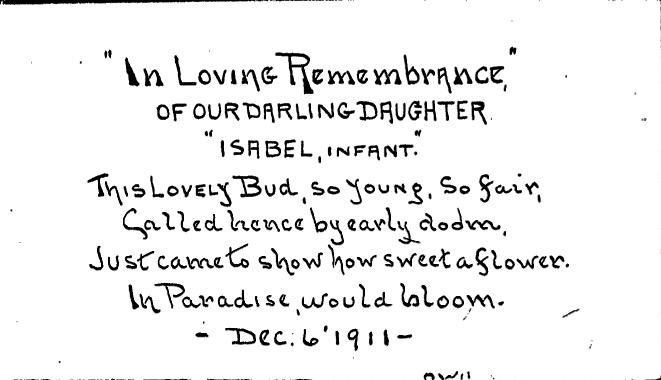 "In Loving Remembrance,"
OF OUR DARLING DAUGHTER.
"ISABEL, INFANT."
This Lovely Bud, so young, So fair,
Called hence by early doom,
Just came to show how sweet a flower.
In Paradise, would bloom.
- Dec. 6' 1911 -